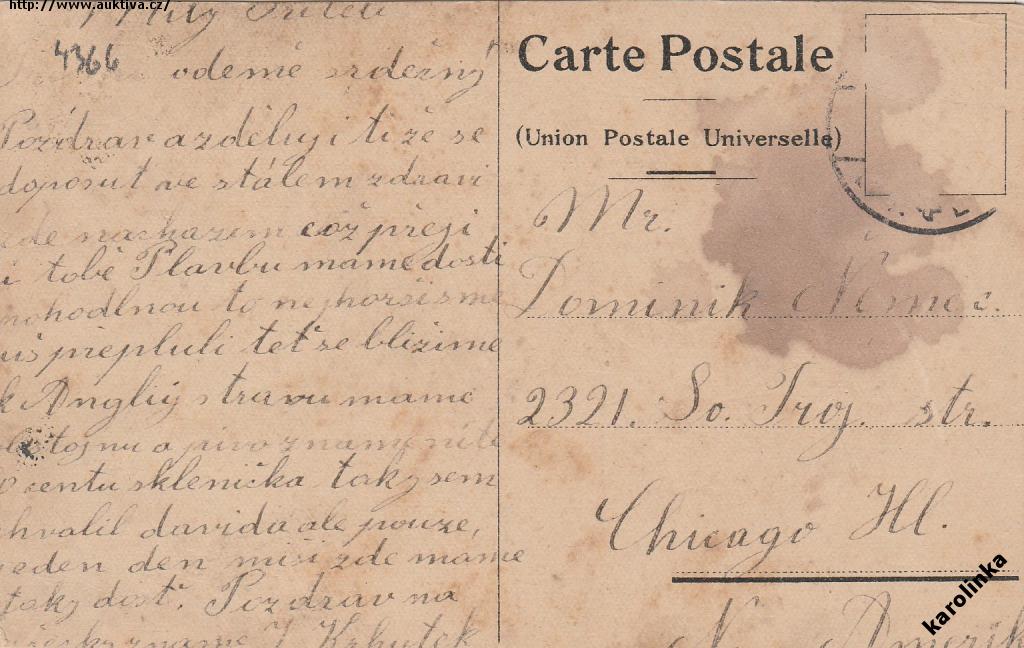 http://www.auktiva.cz/
Milý Příteli
4366
odemě srdečný
Pozdrav a zděluji ti že se
doposut ve stálem zdravi
zde nacházem což přeji
i tobě Plavbu mame dosti
pohodlnou to nejhorši sme
už přepluli teť se bližime
k Angliy stravu mame
a pivo znamenite
centu sklenička taky sem
chvalil davida ale pouze,
jeden den miši zde mame
taky dosť. Pozdrav na
zname J. Krhutek
Carte Postale
(Union Postale Universelle)
Mr.
Dominik Němec.
2321. So. Troj. str.
Chicago Ill.
N. Amerik
karolinka